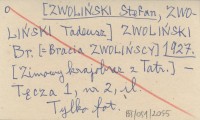 o [ZWOLIŃSKI Stefan, ZWO-
LIŃSKI Tadeusz] ZWOLIŃSKI
Br. [=Bracia ZWOLIŃSCY] 1927.
[Zimowy krajobraz z Tatr.] –
Tęcza 1, nr 2, il.
Tylko fot.